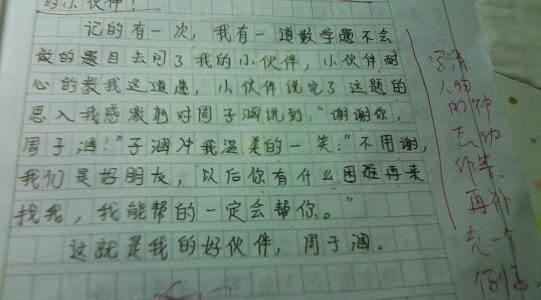 的小伙伴!
记的有一次,我有一道数学题不会
做的题目去问了我的小伙伴,小伙伴耐
心的教我这道题,小伙伴说完了这题的
思入我感激的对周子涵说到:"谢谢你,
周子涵!"子涵冲我温柔的一笑:"不用谢,
我们是好朋友,以后你有什么困难再来
找我,我能帮的一定会帮你。"
这就是我的好伙伴,周子涵。
写清
人物
的神
态动
作等
再补
充一个
例子